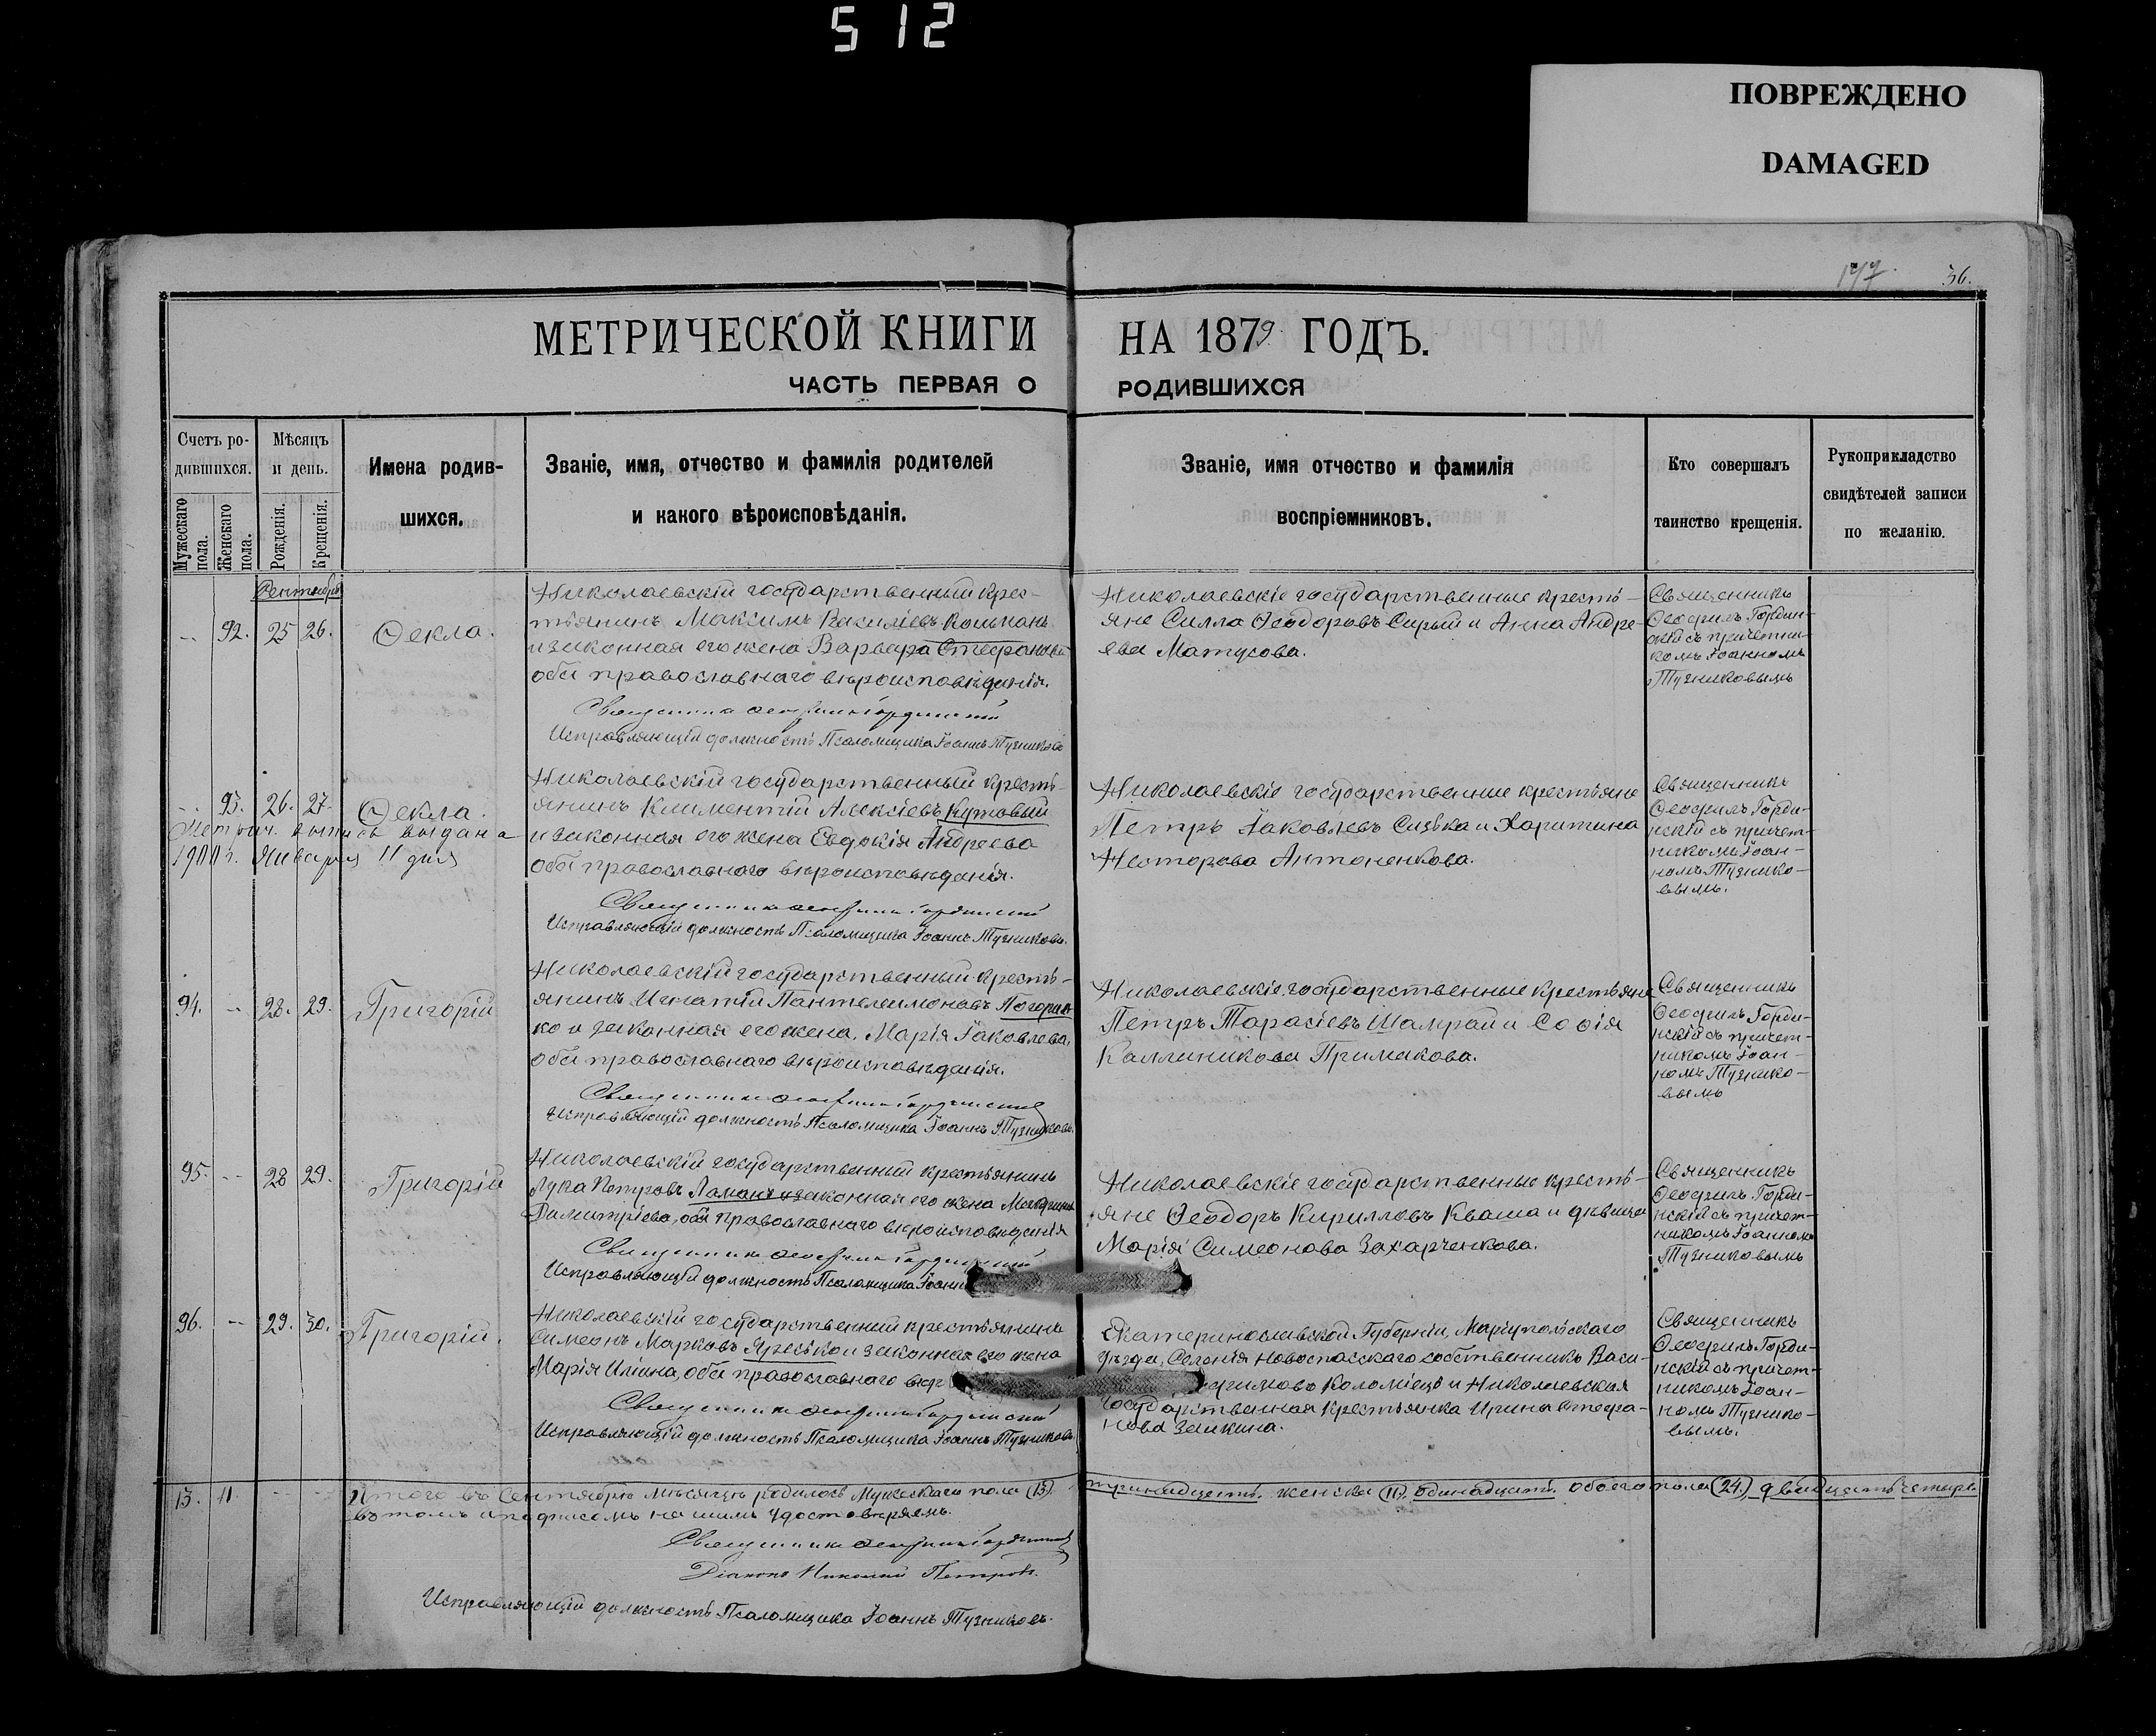 512
ПОВРЕЖДЕНО
DAMAGED
36.
МЕТРИЧЕСКОЙ КНИГИ НА 1879 ГОДЪ.
ЧАСТЬ ПЕРВАЯ О РОДИВШИХСЯ
Счетъ ро-
дившихся.
Мужескаго пола.
Женскаго пола.
Мѣсяцъ
и день.
Рожденія.
Крещенія.
Имена родив-
шихся.
Званіе, имя, отчество и фамилія родителей
и какого вѣроисповѣданія.
Званіе, имя отчество и фамилія
воспріемниковъ.
Кто совершалъ
таинство крещенія.
Рукоприкладство
свидѣтелей записи
по желанію.
Сентябрь
92. 25 26. Ѳекла.
Николаевскій государственный крес-
тьянинъ Максимъ Василіевъ
и законная его жена Варвара Стефанова
оба православнаго вѣроисповѣданія.
Исправляющій должность Псаломщика Іоаннъ Тузниковъ
Николаевскіе государственные кресть-
яне Силла Ѳеодоровъ Сирый и Анна Андре-
ева Матусова.
Священникъ
Ѳеофилъ Гордин-
скій съ причетни-
комъ Іоанномъ
Тузниковымъ
93. 26. 27. Ѳекла.
Метрич. выпись выдана
1900 г. Января 11 дня
Николаевскій государственный кресть-
янинъ Климентій Алексіевъ Кутовый
и законная его жена Евдокія Андреева
оба православнаго вѣроисповѣданія.
Исправляющій должность Псаломщика Іоаннъ Тузниковъ.
Николаевскіе государственные крестьяне
Петръ Іаковлевъ и Харитина
Несторова Антоненкова.
Священникъ
Ѳеофилъ Горди-
нскій съ причет-
никомъ Іоан-
номъ Тузнико-
вымъ.
94. -- 28. 29. Григорій
Николаевскій государственный кресть-
янинъ Игнатій Пантелеимоновъ
ко и законная его жена Марія Іаковлева,
оба православнаго вѣроисповѣданія.
Исправляющій должность Псаломщика Іоаннъ Тузниковъ.
Николаевскіе государственные крестьяне
Петръ Тарасіевъ Шамрай и Софія
Каллиникова Примакова.
Священникъ
Ѳеофилъ Горди-
нскій съ причет-
никомъ Іоан-
номъ Тузнико-
вымъ
95. -- 28 29. Григорій
Николаевскій государственный крестьянинъ
Лука Петровъ законная его жена
Димитріева, оба православнаго вѣроисповѣданія
Исправляющій должность Псаломщика Іоаннъ
Николаевскіе государственные кресть-
яне Ѳеодоръ Кирилловъ Кваша и дѣвица
Марія Симеонова Захарченкова.
Священникъ
Ѳеофилъ Горди-
нскій съ причет-
никомъ Іоанномъ
Тузниковымъ
96. -- 29. 30. Григорій.
Николаевскій государственный крестьянинъ
Симеонъ Марковъ Яресько и законная его жена
Марія Иліина, оба православнаго вѣр
Исправляющій должность Псаломщика Іоаннъ Тузниковъ
Екатеринославской Губерніи, Маріупольскаго
Уѣзда, Селенія Новоспасскаго собственникъ Васи-
Коломіецъ и Николаевская
государственная крестьянка Ирина Стефа-
нова Заикина.
Священникъ
Ѳеофилъ Горди-
нскій съ причет-
никомъ Іоан-
номъ Тузнико-
вымъ.
13. 11. -- -- Итого въ Сентябрѣ мѣсяцѣ родилось Мужескаго пола (13). тринадцать. женска (11), одинадцать. обоего пола (24.) двадцать четыре
въ томъ и подписомъ нашимъ удостовѣряемъ.
Діаконъ Николай Петровъ.
Исправляющій должность Псаломщика Іоаннъ Тузниковъ.